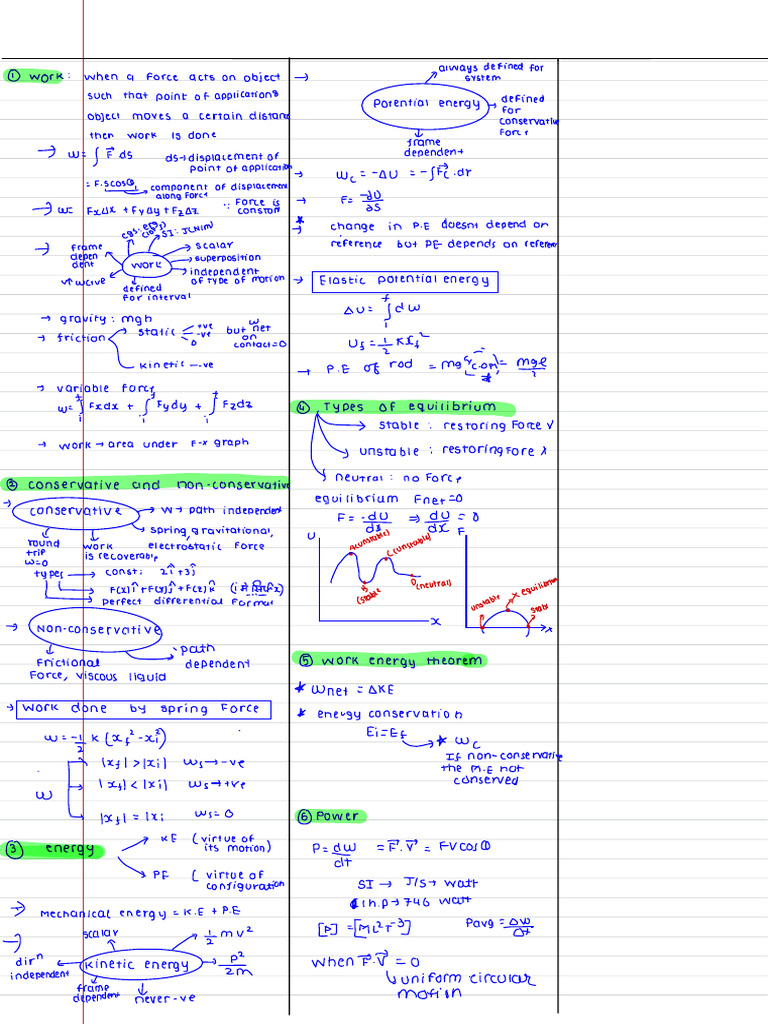 ① Work: when a Force acts on object
such that point of application of
object moves a certain distanc
then work is done
→ W = ∫ F⃗ ds   ds → displacement of
point of application
= F.s cosθ → component of displacement
along Force
→ W = FxΔx + FyΔy + FzΔz   ∵ Force is
constant
→ work
frame
depen
dent
cgs: ergs
SI: J (Nm)
scalar
superposition
independent
of type of motion
defined
for interval
→ gravity: mgh
→ friction
static
+ve
-ve
0
but W net
on
contact = 0
kinetic → -ve
→ variable force
W = ∫ Fxdx + ∫ Fydy + ∫ Fzdz
i f i f i f
→ work → area under F-x graph
② conservative and non-conservative
→ conservative
→ W → path independent
→ spring, gravitational,
electrostatic Force
round
trip
W=0
work
is recoverable
types
→ const: 2î+3ĵ
→ F(x)î+F(y)ĵ+F(z)k̂
→ perfect differential format
→ Non-conservative
frictional
Force, viscous liquid
path
dependent
→ Work done by spring Force
W = -1/2 K (xf² - xi²)
W
|xf| > |xi|   Ws → -ve
|xf| < |xi|   Ws → +ve
|xf| = |xi   Ws = 0
③ energy
KE (virtue of
its motion)
PE (virtue of
configuration
→ mechanical energy = K.E + P.E
→ Kinetic energy
scalar
1/2 mv²
P²/2m
dirⁿ
independent
frame
dependent
never -ve
→ Potential energy
always defined for
system
defined
for
conservative
Force
frame
dependent
→ Wc = -ΔU = -∫F⃗c.dr
→ F = -dU/dS
*
→ change in P.E doesnt depend on
reference but PE depends on referen
→ Elastic potential energy
ΔU = ∫ dW
f i
Uf = 1/2 Kxf²
→ P.E of rod = mg (y c.om) = mgl/2
④ Types of equilibrium
stable: restoring Force ✓
unstable: restoring Fore x
neutral: no Force
equilibrium Fnet = 0
F = -dU/ds ⇒ dU/dx = 0
U
A (unstable)
C (unstable)
B
(stable
D (neutral)
x
F
unstable
x equilibrium
stable
x
⑤ work energy theorem
* Wnet = ΔKE
* energy conservation
Ei = Ef
* Wc
If non-conservative
the M.E not
conserved
⑥ Power
P = dW/dt = F⃗.V⃗ = FVcosθ
SI → J/s → watt
1 h.p → 746 watt
[P] = [ML²T⁻³]   Pavg = ΔW/Δt
When F⃗.V⃗ = 0
uniform circular
motion